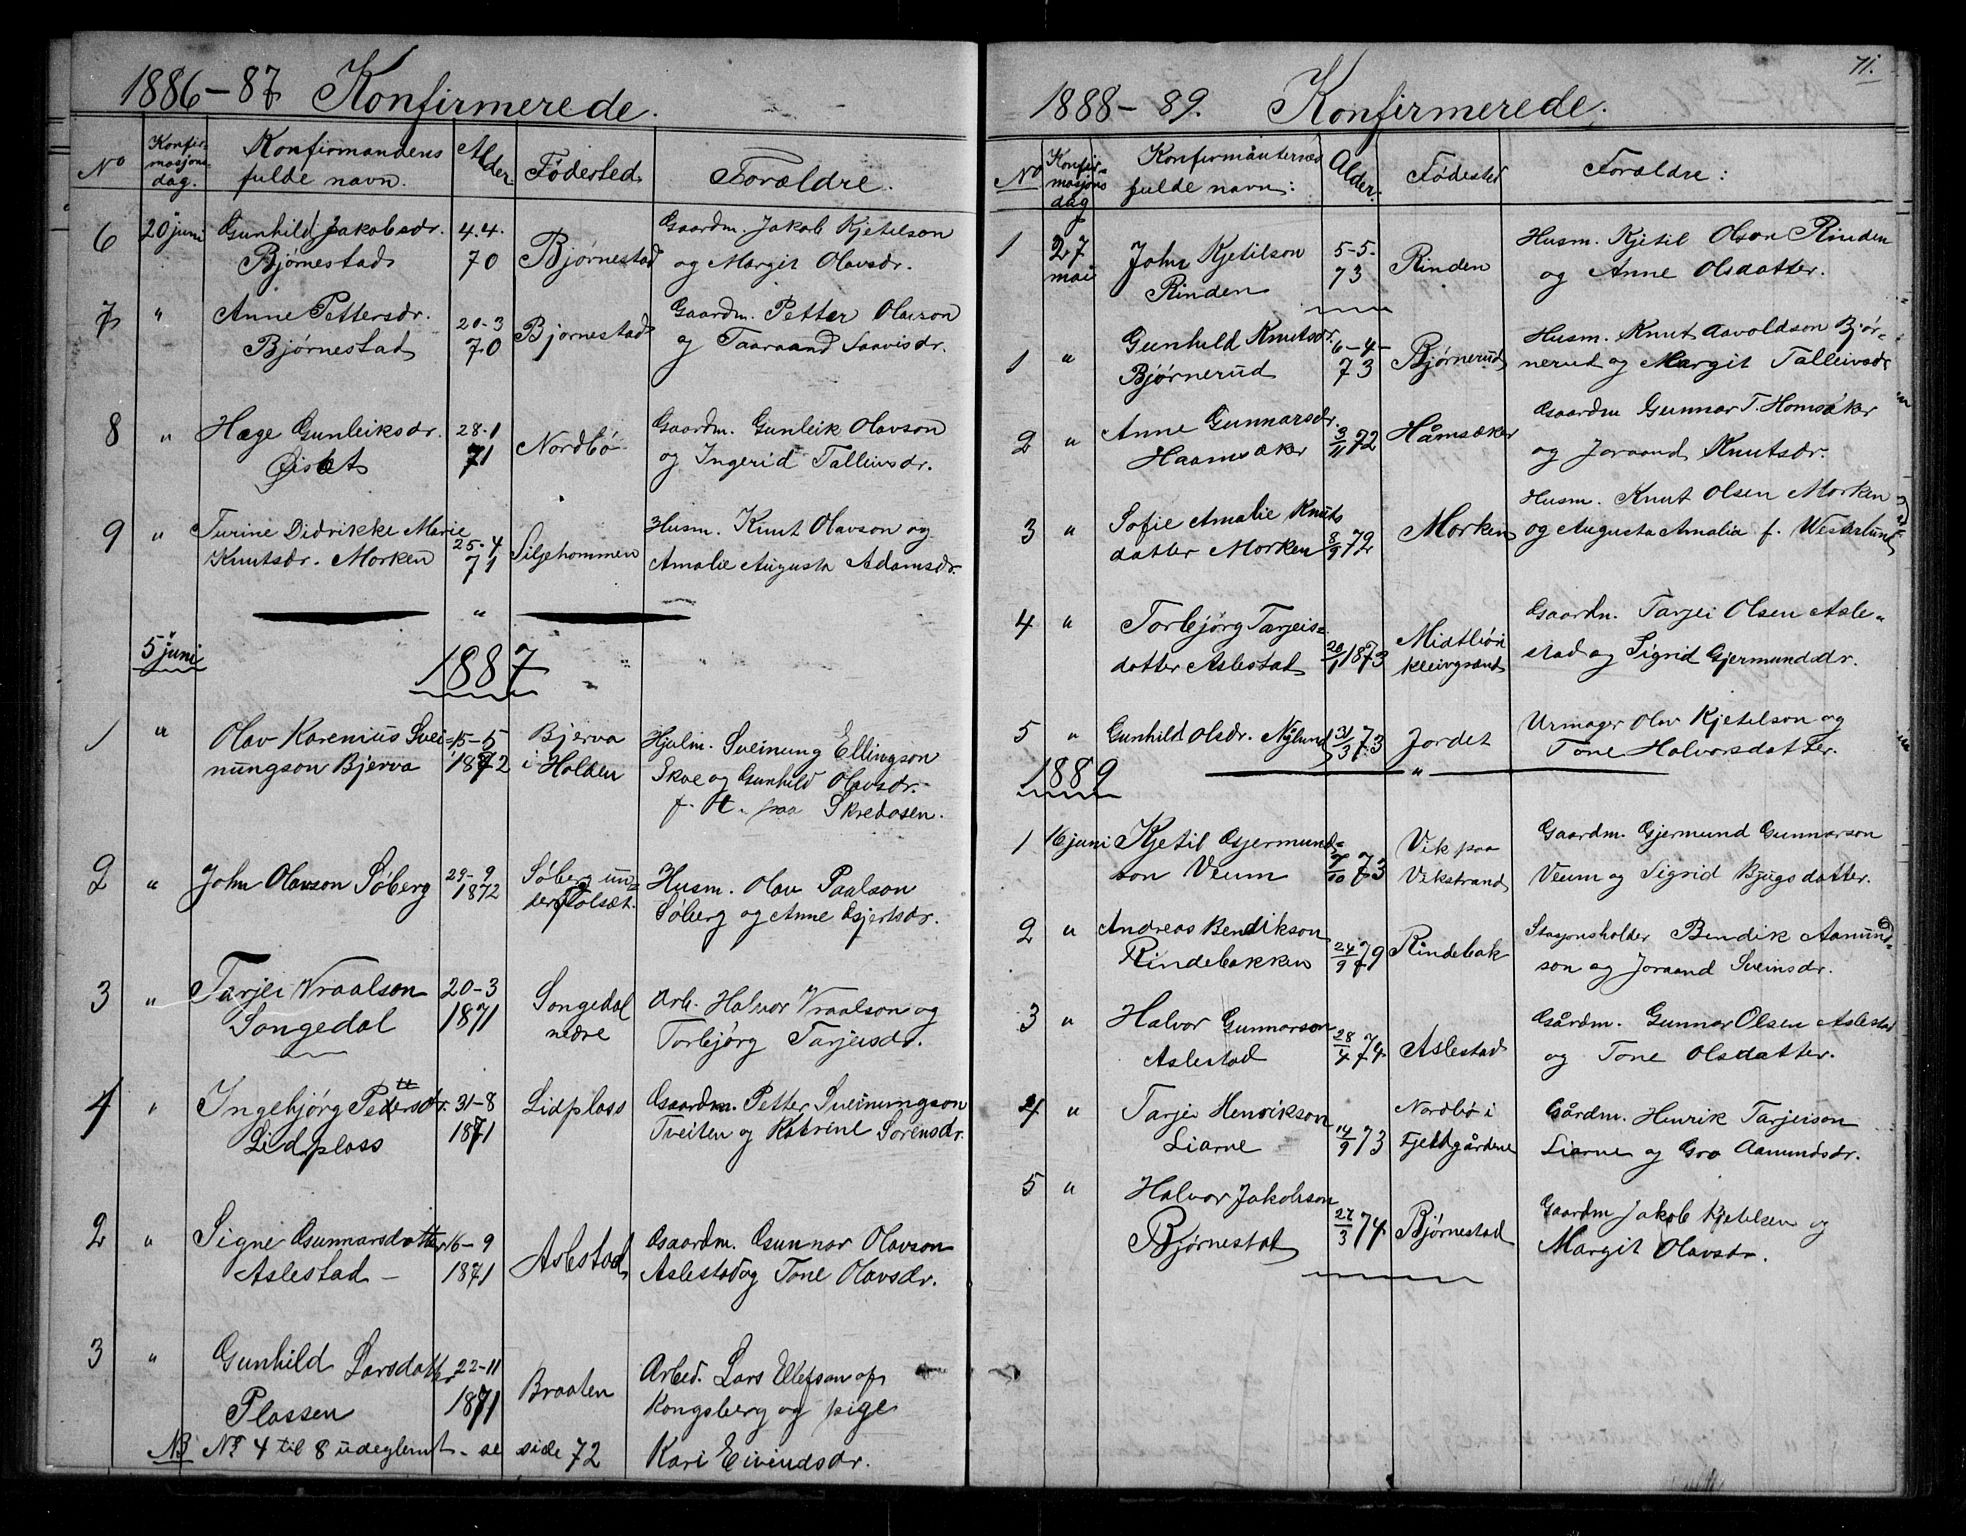 1886-87 Konfirmerede.
No Konfir- Konfirmandens Alder Födested Forældre.
masjons- fulde navn.
dag.
6 20 juni Gunhild Jakobsdr. 4.4. Bjørnestad Gaardm. Jakob Kjetilson
Bjørnestad 70 og Margit Olavsdr.
7 " Anne Pettersdr. 20-3 Bjørnestad Gaardm. Petter Olavson
Bjørnestad 70 og Taaraand Saavisdr.
8 " Hæge Gunleiksdr. 28-1 Nordbö Gaardm. Gunleik Olavson
71 og Ingerid Talleivsdr.
9 " Turine Didrikke Marie 25-4 Siljehommen Husm. Knut Olavson og
Knutsdr. Morken 71 Amalie Augusta Adamsdr.
"
5 juni
1887
1 " Olav Karenius Svei- 15-5 Bjerva Hjulm. Sveinung Ellingson
nungson Bjerva 1872 i Holden Skoe og Gunhild Olavsdr.
f. H. paa Skredasen.
2 " John Olavson Söberg 29-9 Söberg un- Husm. Olav Paalson
1872 der Folsæt. Söberg og Anne Gjertsdr.
3 " Tarjei Vraalson 20-3 Songedal Arb. Halvor Vraalson og
Songedal 1871 nedre Torbjörg Tarjeisdr.
4 " Ingebjörg Pettersdr. 31-8 Lidplass Gaardm. Petter Sveinungson
Lidplass 1871 Tveiten og Katrine Sorensdr.
2 " Signe Gunnarsdatter 16-9 Aslestad Gaardm. Gunnar Olavson
Aslestad - 1871 Aslestad og Tone Olavsdr.
3 " Gunhild Larsdatter 22-11 Braaten Arbed. Lars Ellefson af
Plassen 1871 Kongsberg og pige
NB No 4 til 8 udeglemt - se side 72 Kari Eivindsdr.
71.
1888-89. Konfirmerede.
No Konfir- Konfirmanternes Alder. Födested Forældre:
masjons fulde navn:
dag
1 27 John Kjetilson 5-5. Rinden Husm. Kjetil Olson Rinden
mai Rinden 73 og Anne Olsdatter.
1 " Gunhild Knutsdr. 6-4- Bjørnerud Husm. Knut Aavoldson Bjør-
Bjørnerud 73 nerud og Margit Talleivsdr
2 " Anne Gunnarsdr. 3/11 72 Håmsæker Gaardm Gunnar T. Homsæker
Haamsæker og Joraand Knutsdr.
3 " Sofie Amalie Knuts 8/9 72 Morken Husm. Knut Olsen Morken
datter Morken og Augusta Amalia f. Westerlund
4 " Torbjörg Tarjeis- 20/1 1873 Midtböi Gaardm. Tarjei Olsen Asle-
datter Aslestad Kleivgrænd stad og Sigrid Gjermundsdr.
5 " Gunhild Olsdr. Nylund 31/3 73 Jordet Urmager Olav Kjetelson og
Tone Halvorsdatter.
1889 "
1 16 juni Kjetil Gjermund- 7/10 73 Vik paa Gaardm. Gjermund Gunnarson
son Veum Vikstrand Veum og Sigrid Bjugsdatter.
2 " Andreas Bendikson 24/9 79 Rindebak Stasjonsholder Bendik Aamund-
Rindebakken son og Joraand Sveinsdr.
3 " Halvor Gunnarson 28/4 74 Aslestad Gårdm. Gunnar Olsen Aslestad
Aslestad og Tone Olsdatter.
4 " Tarjei Henrikson 14/9 73 Nordbö i Gårdm. Henrik Tarjeison
Liarne Fjeldgårdene Liarne og Gro Aamundsdr.
5 " Halvor Jakobson 27/3 74 Bjørnestad Gaardm Jakob Kjetelsen og
Bjørnestad Margit Olavsdr.